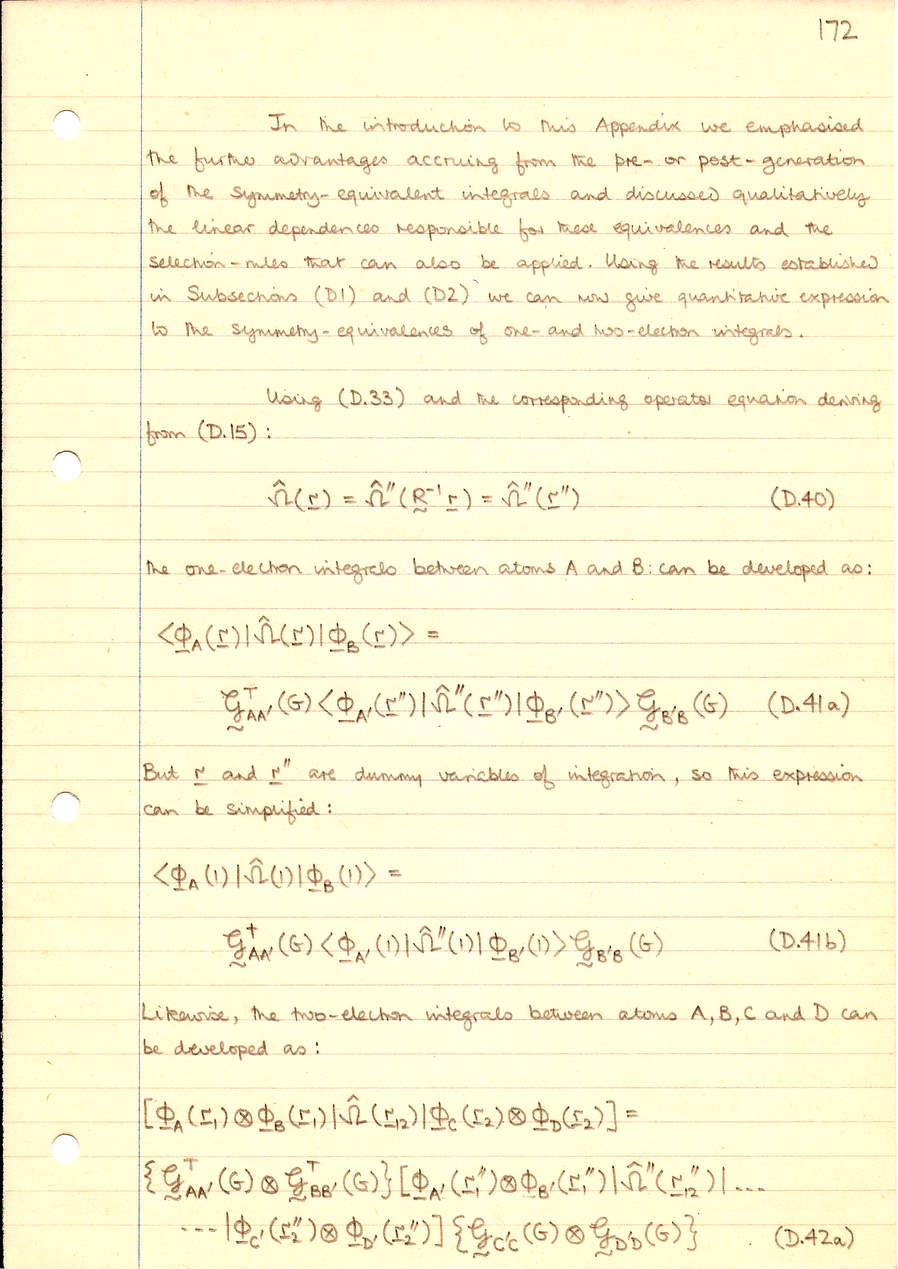 172
In the introduction to this Appendix we emphasised
the further advantages accruing from the pre- or post-generation
of the symmetry-equivalent integrals and discussed qualitatively
the linear dependences responsible for these equivalences and the
selection-rules that can also be applied. Using the results established
in Subsections (D1) and (D2) we can now give quantitative expression
to the symmetry-equivalences of one- and two-electron integrals.
Using (D.33) and the corresponding operator equation deriving
from (D.15):
Ω̂(r̲) = Ω̂″(R̰⁻¹ r̲) = Ω̂″(r̲″) (D.40)
the one-electron integrals between atoms A and B: can be developed as:
<Φ̲_A(r̲)|Ω̂(r̲)|Φ̲_B(r̲)> =
𝒢̰ᵀ_AA′(G) <Φ̲_A′(r̲″)|Ω̂″(r̲″)|Φ̲_B′(r̲″)> 𝒢̰_B′B(G) (D.41a)
But r̲ and r̲″ are dummy variables of integration, so this expression
can be simplified:
<Φ̲_A(1)|Ω̂(1)|Φ̲_B(1)> =
𝒢̰†_AA′(G) <Φ̲_A′(1)|Ω̂″(1)|Φ̲_B′(1)> 𝒢̰_B′B(G) (D.41b)
Likewise, the two-electron integrals between atoms A, B, C and D can
be developed as:
[Φ̲_A(r̲₁)⊗Φ̲_B(r̲₁)|Ω̂(r̲₁₂)|Φ̲_C(r̲₂)⊗Φ̲_D(r̲₂)] =
{𝒢̰ᵀ_AA′(G) ⊗ 𝒢̰ᵀ_BB′(G)} [Φ̲_A′(r̲₁″)⊗Φ̲_B′(r̲₁″)|Ω̂″(r̲₁₂″)| ...
... |Φ̲_C′(r̲₂″)⊗Φ̲_D′(r̲₂″)] {𝒢̰_C′C(G) ⊗ 𝒢̰_D′D(G)} (D.42a)